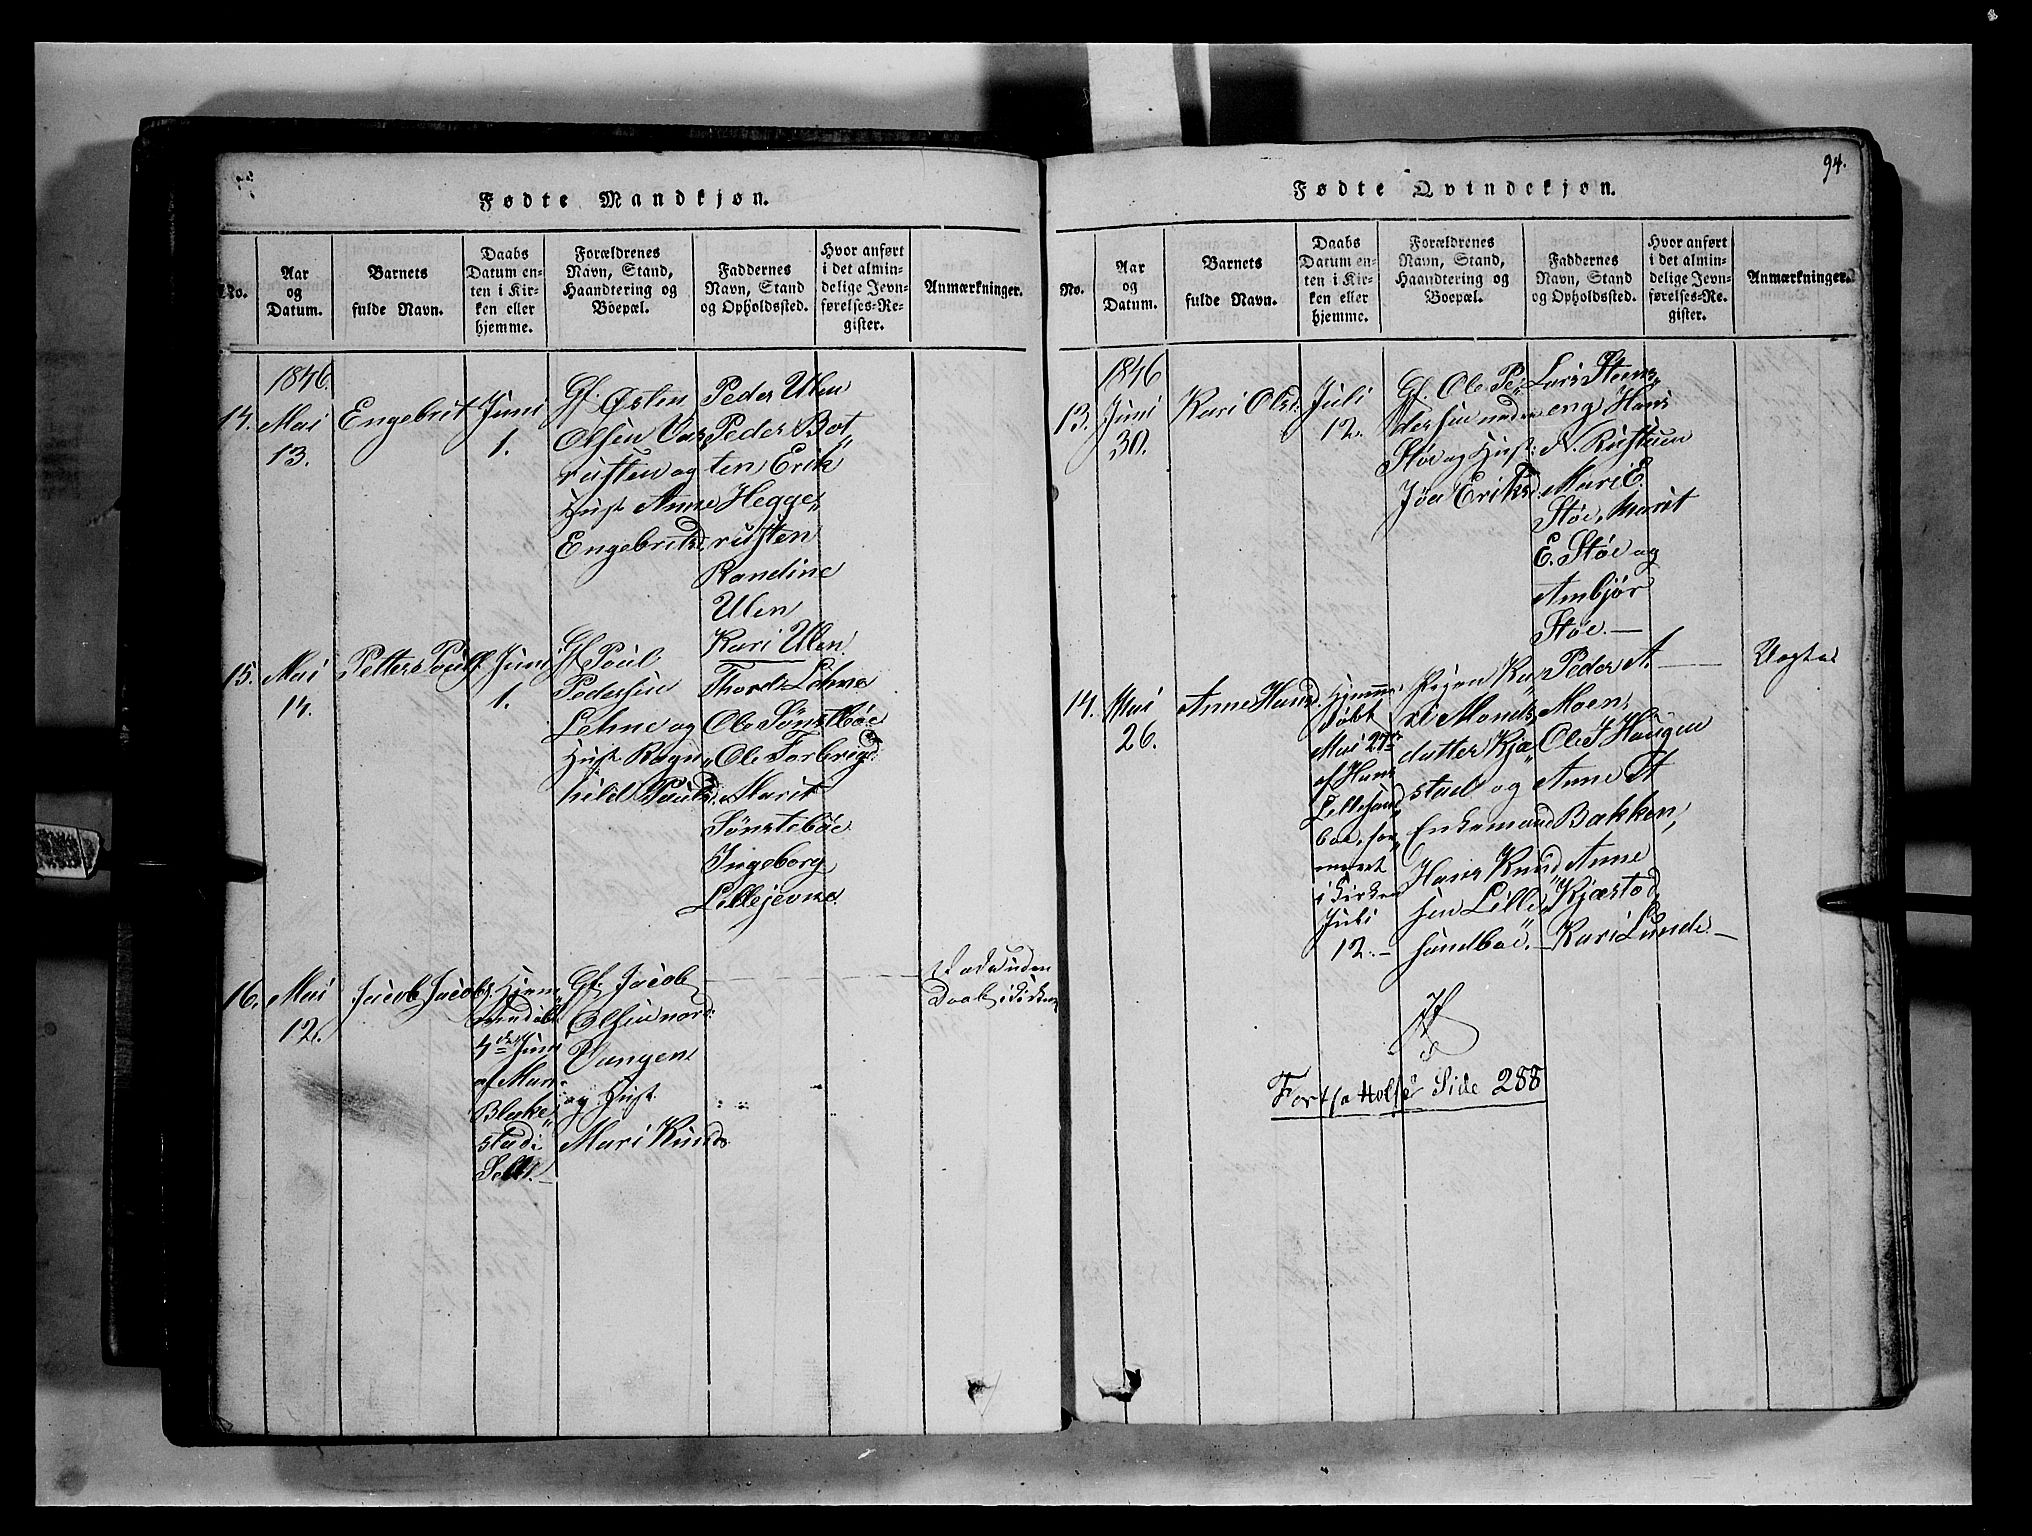 94.
Fødte Mandkjøn.
No.
Aar
og
Datum.
Barnets
fulde Navn.
Daabs
Datum en-
ten i Kir-
ken eller
hjemme.
Forældrenes
Navn, Stand,
Haandtering og
Boepæl.
Faddernes
Navn, Stand
og Opholdssted.
Hvor anført
i det almin-
delige Jevn-
førelses-Re-
gister.
Anmærkninger.
14.
1846.
Mai
13.
Engebrit
Juni
1.
Gf. Østen
Olsen Vas
rusten og
Hust Anne
Engebritsd
Peder Ulen
Peder Bot
ten Erik
Hegge
rusten
Randine
Ulen
Kari Ulen.
15.
Mai
14.
Petter Poul
Juni
1.
Gf Poul
Pedersen
Lehne og
Hust Ragn
hild Pouls
Thord Lehne
Ole Sönstböe
Ole Forbrigd
Marit
Sönsteböe
Ingeborg
Lillejevne
16.
Mai
12.
Jacob Jacobs.
Hjem
medöbt
4de Juni
af
Blake
stad
Sell.
Gf. Jacob
Olsen nord
Vangen
og Hust.
Mari Knuds
uden
Daab i Kirken
Fødte Qvindekjøn.
No.
Aar
og
Datum.
Barnets
fulde Navn.
Daabs
Datum en-
ten i Kir-
ken eller
hjemme.
Forældrenes
Navn, Stand,
Haandtering og
Boepæl.
Faddernes
Navn, Stand
og Opholdssted.
Hvor anført
i det almin-
delige Jevn-
førelses-Re-
gister.
Anmærkninger.
13.
1846
Juni
30.
Kari Olsd.
Juli
12.
Gf. Ole Pe
dersen nedre
Stöe og Hust:
Jöa Eriksd.
Lars Steens
eng Hans
A. Rustuen
Mari E.
Stöe, Marit
E. Stöe og
Ambjör
Stöe.
14.
Mai
26.
Anne Hansd.
Hjemme
döbt
Mai 27de
af Hans
Lillesand
boe,
i Kirken
Juli
12.
Pigen Ka
ri Monds
datter Kjæ
stad og
Enkemand
Hans Knud
sen Lille
sandboe.
Peder A.
Moen,
Ole T Haugen
Anne A
Bakken,
Anne
Kjæstad,
Kari Lunde
Uægte
Side 288